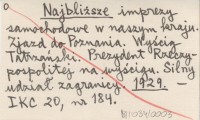 Najbliższe imprezy
samochodowe w naszym kraju.
Zjazd do Poznania. Wyścig
Tatrzański. Prezydent Rzeczy-
pospolitej na wyścigu. Silny
udział zagranicy. 1929. –
IKC 20, nr 184.